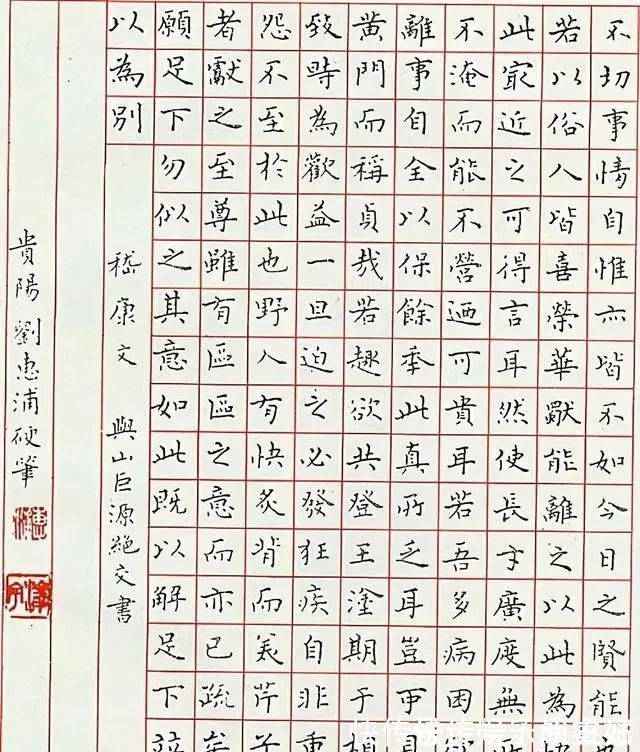 不切事情自惟亦皆不如今日之賢能
若以俗人皆喜榮華獨能離之以此為
此最近之可得言耳然使長才廣度無
不淹而能不營迺可貴耳若吾多病困
離事自全以保餘年此真所乏耳豈可見
黄門而稱貞哉若趣欲共登王塗期于相
致時為歡益一旦迫之必發狂疾自非重
怨不至於此也野人有快炙背而美芹子
者獻之至尊雖有區區之意而亦已疏矣
願足下勿似之其意如此既以解足下竝
以為別 嵇康文 與山巨源絕交書
貴陽劉惠浦硬筆